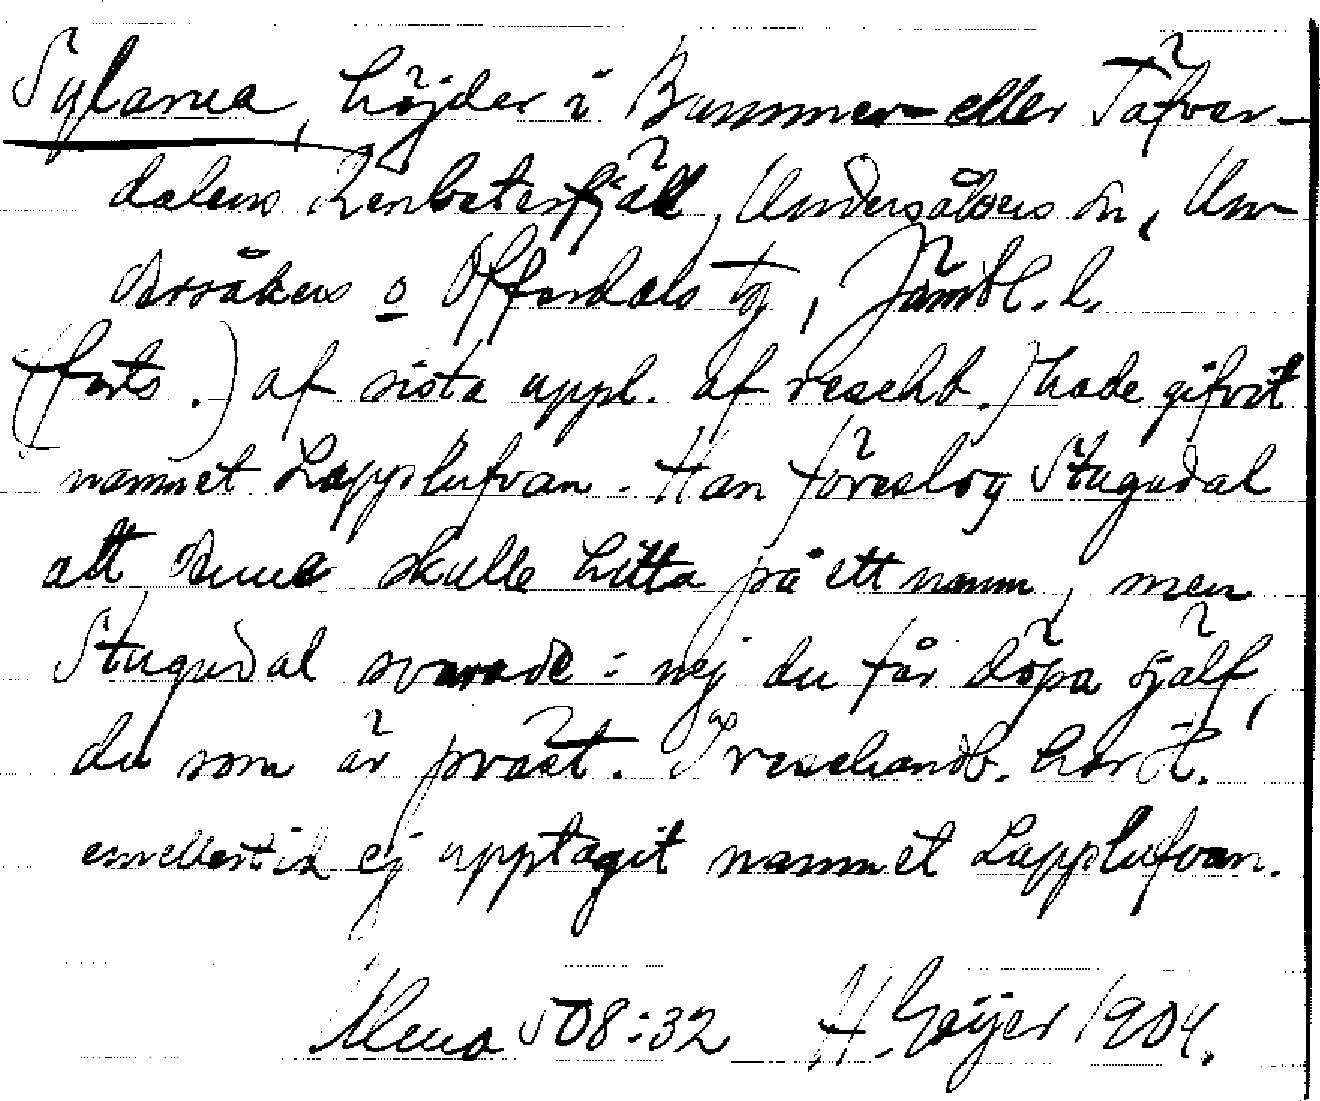 Sylarna, höjder i Bummer- eller Täfver-
dalens Renbetesfjäll, Undersåkers sn, Un-
dersåkers o Offerdals tg, Jämtl. l.
(forts.) af sista uppl. af resehb.) hade gifvit
namnet Lapplufvan. Han föreslog Stugudal
att denne skulle hitta på ett namn, men
Stugudal svarade: nej du får döpa själf,
du som är präst. I resehandb. har H.
emellertid ej upptagit namnet Lapplufvan.
508:32 H. Geijer 1904.